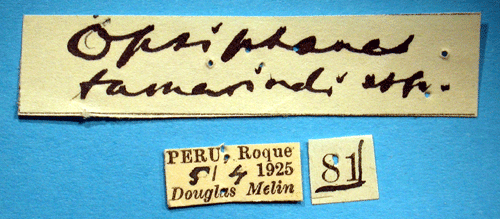 Opsiphanes
tamarindi ssp.
PERU, Roque
5/4 1925
Douglas Melin
81